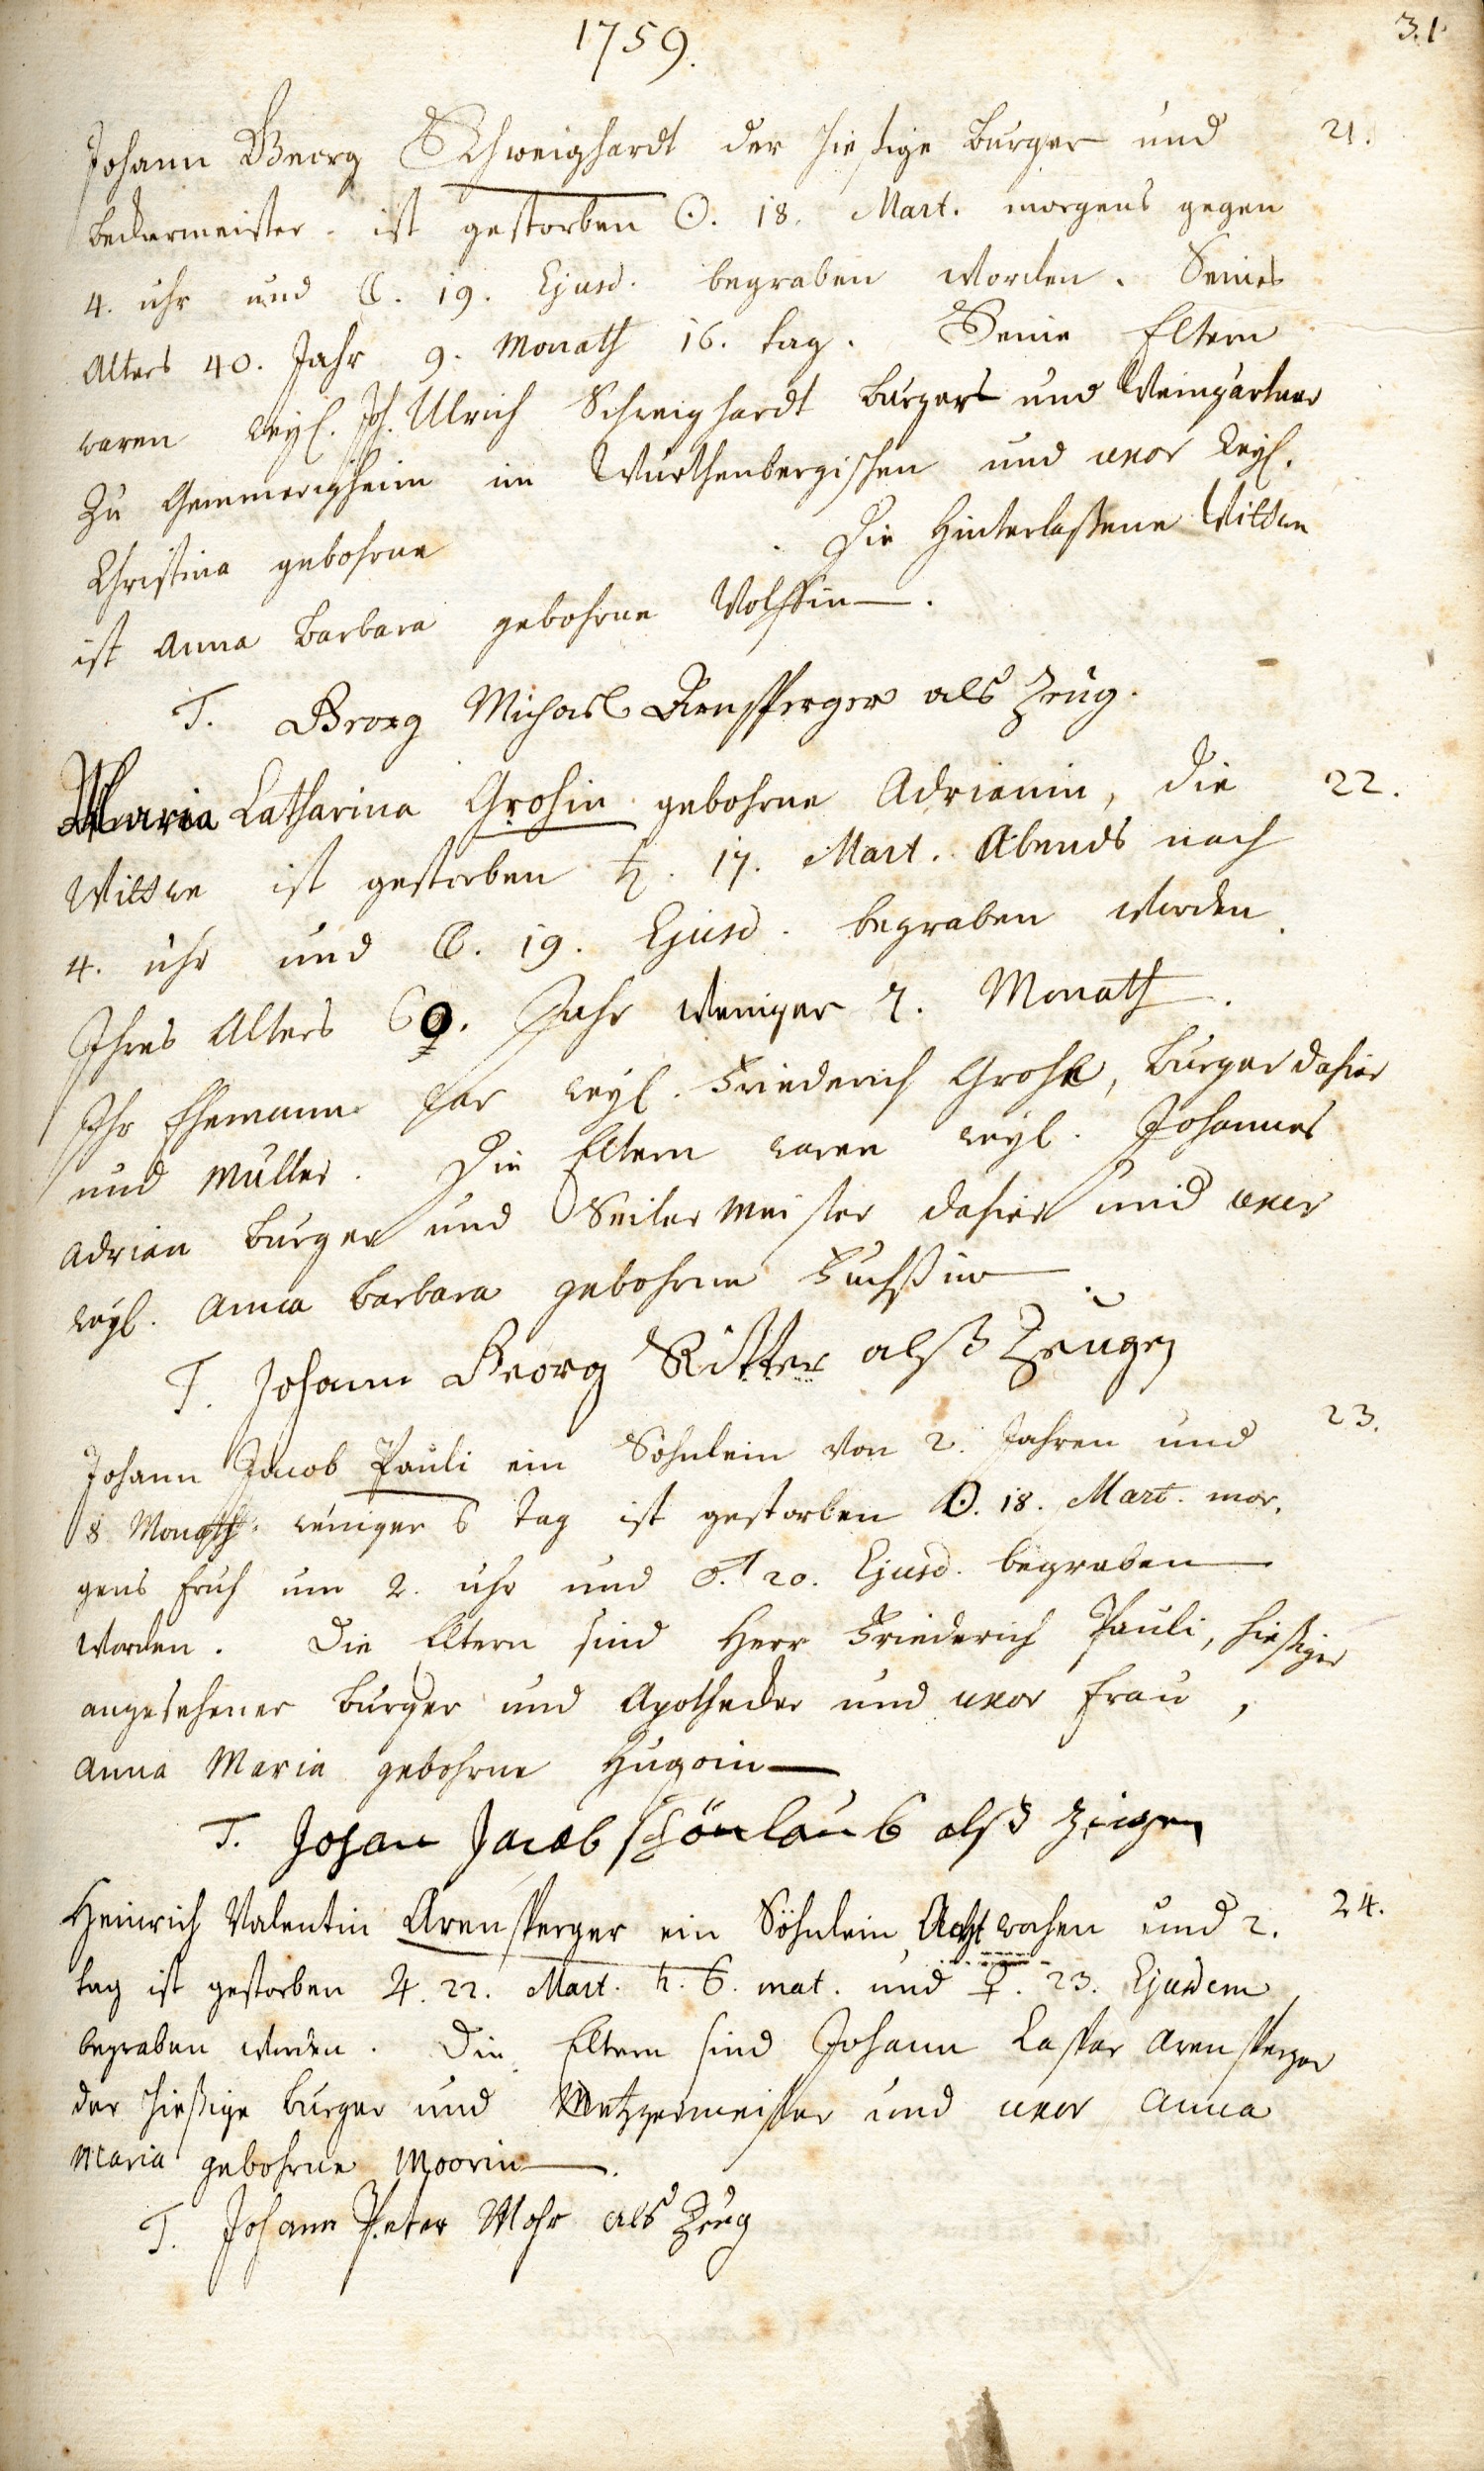 1759.
31.
Johann Georg Schweighardt der hießige burger und
21.
beckermeister ist gestorben ☉. 18. Mart. morgens gegen
4. uhr und ☾. 19. Ejusd. begraben worden. Seines
Alters 40. Jahr 9. Monath 16. tag. Seine Eltern
waren weyl. Joh. Ulrich Schweighardt burger und Weingärtner
zu Gemmerigheim im Würthenbergischen und uxor weyl.
Christina gebohrne . Die Hinterlaßene Wittwe
ist Anna Barbara gebohrne Wolffin.
T. Georg Michael Arensperger als Zeug.
Maria Catharina Grohin gebohrne Adrianin, die
22.
Wittwe ist gestorben ♄. 17. Mart. Abends nach
4. uhr und ☾. 19. Ejusd. begraben worden.
Ihres Alters 69. Jahr weniger 2. Monath.
Ihr Ehemann war weyl. Friederich Grohe, burger dahier
und Müller. Die Eltern waren weyl. Johannes
Adrian burger und Seilermeister dahier und uxor
weyl. Anna Barbara gebohrne Fuchßin.
T. Johann Georg Ritter alß Zeugen
Johann Jacob Pauli ein Söhnlein von 2. Jahren und
23.
8 Monath weniger 6 tag ist gestorben ☉. 18. Mart. mor-
gens fruh um 2. uhr und ♂. 20. Ejusd. begraben
worden. Die Eltern sind Herr Friederich Pauli, hießiger
angesehener burger und Apothecker und uxor frau,
Anna Maria gebohrne Hugoin
T. Johan Jacob schönlaub alß zeigen
Heinrich Valentin Arensperger ein Söhnlein, Acht wochen und 2.
24.
tag ist gestorben ♃. 22. Mart. h. 6. mat. und ♀. 23. Ejusdem
begraben worden. Die Eltern sind Johann Caspar Arensperger
der hießige burger und Metzgermeister und uxor Anna
Maria gebohrne Moorin.
T. Johann Peter Mohr als Zeug